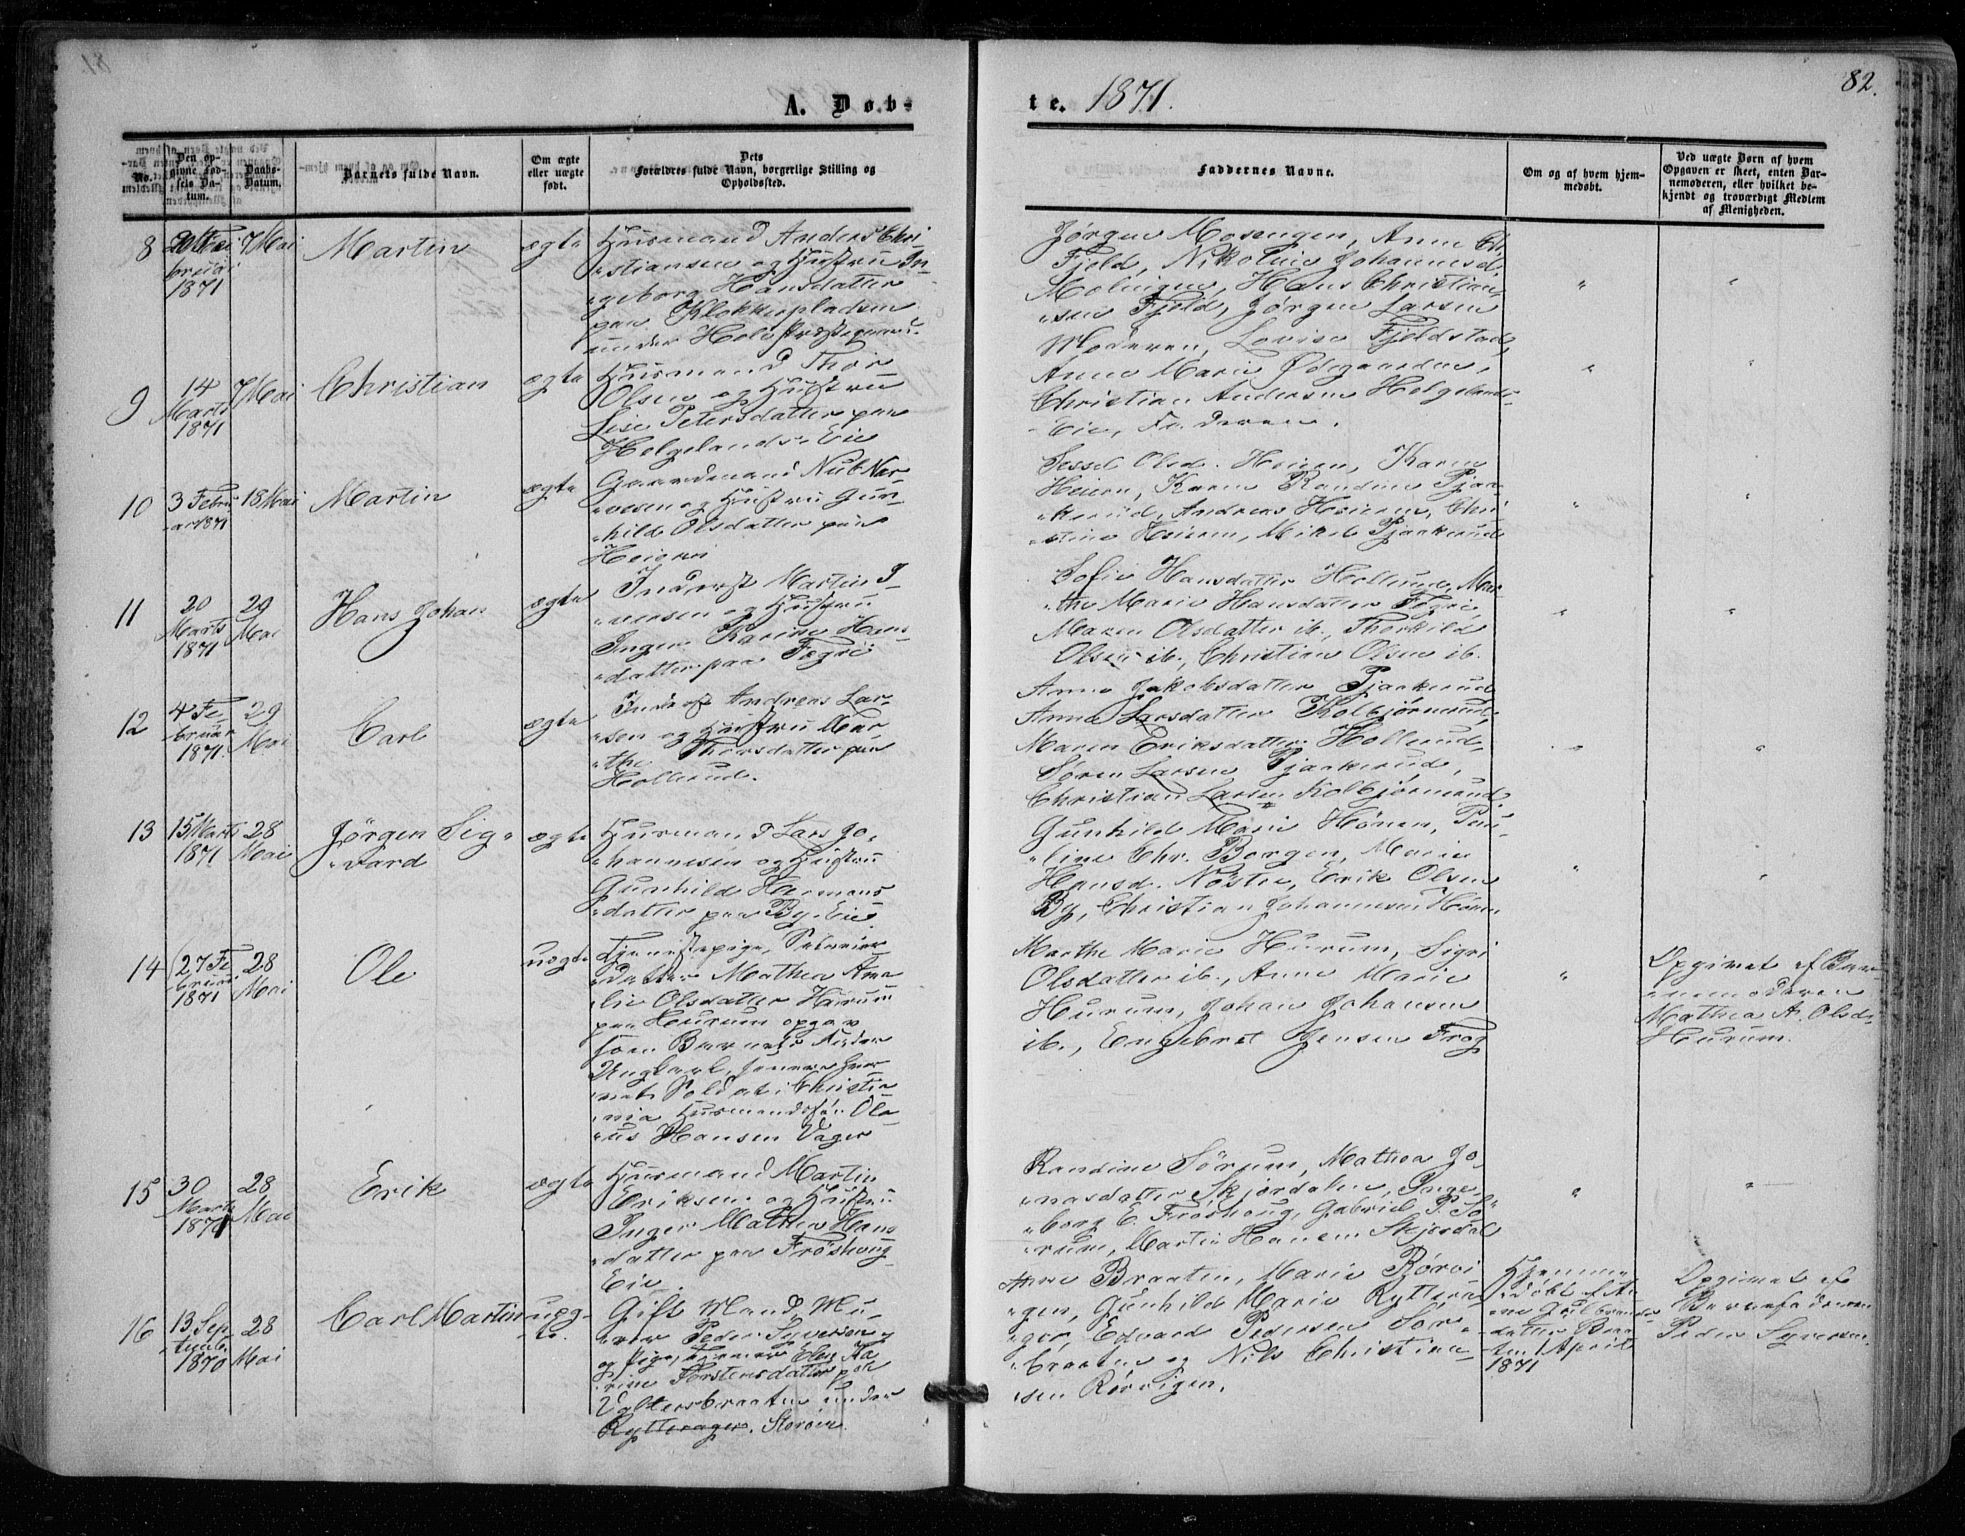 A. Døb-
te. 1871.
82.
No.
Den opgivne Fødsels Datum.
Daabs-Datum.
Barnets fulde Navn.
Om ægte eller uægte født.
Dets Forældres fulde Navn, borgerlige Stilling og Opholdssted.
Faddernes Navne.
Om og af hvem hjemmedøbt.
Ved uægte Børn af hvem Opgaven er skeet, enten Barnemoderen, eller hvilket bekjendt og troværdigt Medlem af Menigheden.
8
Februar
1871
7 Mai
Martin
ægte
Husmand Anders Chri-
stiansen og Hustru In-
geborg Hansdatter
paa Klokkerpladsen
under Hole Præstegaard.
Jørgen Mosengen, Anne Chr.
Fjeld, Nikoline Johannesd.
Hans Christian-
sen Fjeld, Jørgen Larsen
9
14
Marts
1871
7 Mai
Christian
ægte
Husmand Thor
Olsen og Hustru
Lise Petersdatter paa
Helgelands-Eie
Moderen, Lovise Fjeldstad,
Anne Marie Ødegaarden,
Christian Andersen Helgelands-
Eie, Faderen.
10
3 Febru-
ar 1871
18 Mai
Martin
ægte
Gaardmand Nub Nar-
vesen og Hustru Gun-
hild Olsdatter paa
Heieren
Sessel Olsd. Heieren, Karen
Heieren, Karen Randine Pjaa-
kerud, Andreas Heieren, Chri-
stine Heieren, Mikel Pjaakerud
11
20
Marts
1871
29
Mai
Hans Johan
ægte
Inderst Martin I-
versen og Hustru
Inger Karine Hans-
datter paa Fegri
Sofie Hansdatter Hollerud, Mar-
the Marie Hansdatter Fegri,
Maren Olsdatter ib., Thorkild
Olsen ib., Christian Olsen ib.
12
4 Fe-
bruar
1871.
29
Mai
Carl
ægte
Inderst Andreas Lar-
sen og Hustru Mar-
the Thorsdatter paa
Hollerud.
Anne Jakobsdatter Pjaakerud
Anne Larsdatter Kolbjørnrud,
Maren Eriksdatter Hollerud,
Søren Larsen Pjaakerud,
Christian Larsen Kolbjørnrud
13
15 Marts
1871
28
Mai
Jørgen Sig-
vard
ægte
Husmand Lars Jo-
hannesen og Hustru
Gunhild Hermans-
datter paa By-Eie
Gunhild Marie Hønen, Pau-
line Chr. Borgen, Marie
Hansd. Nøste, Erik Olsen
By, Christian Johannesen Hønen
14
27 Fe-
bruar
1871
28
Mai
Ole
uægte
Tjenestepige,
Datter Mathea Ama-
lie Olsdatter Hurum
paa Hurum opgav
som Barnefader
Ungkarl,
Soldat i Christia-
nia Husmandssøn Ola-
us Hansen Vager
Marthe Marie Hurum, Sigri
Olsdatter ib., Anne Marie
Hurum, Johan Johansen
ib., Engebret Jensen Frøg
Opgivet af Bar-
nemoderen
Mathea A. Olsd.
Hurum.
15
30
Marts
1871
28
Mai
Erik
ægte
Husmand Martin
Eriksen og Hustru
Inger Mathea Hans-
datter paa Frøshoug
Eie.
Randine Sørum, Mathea Jo-
nasdatter Skjørdalen, Inge-
borg E. Frøshoug, Gabriel P. Sø-
rum, Martin Hansen Skjørdal
16
13 Sep-
temb.
1870
28
Mai
Carl Martin
uæg-
te.
Gift Mand, Mu-
rer Peder Syversen
og Pige, Elen Ka-
rine Torstensdatter paa
Valtersbraaten under
Rytterager. Storøen
Anne Braaten, Marie Rørvi-
gen, Gunhild Marie Ryttera-
ger, Edvard Pedersen Sør-
braaten og Nils Christian-
sen Rørvigen.
Hjemme-
døbt af An-
ne Gulbrands-
datter Braa-
ten 1 April
1871
Opgivet af
Barnefaderen
Peder Syversen